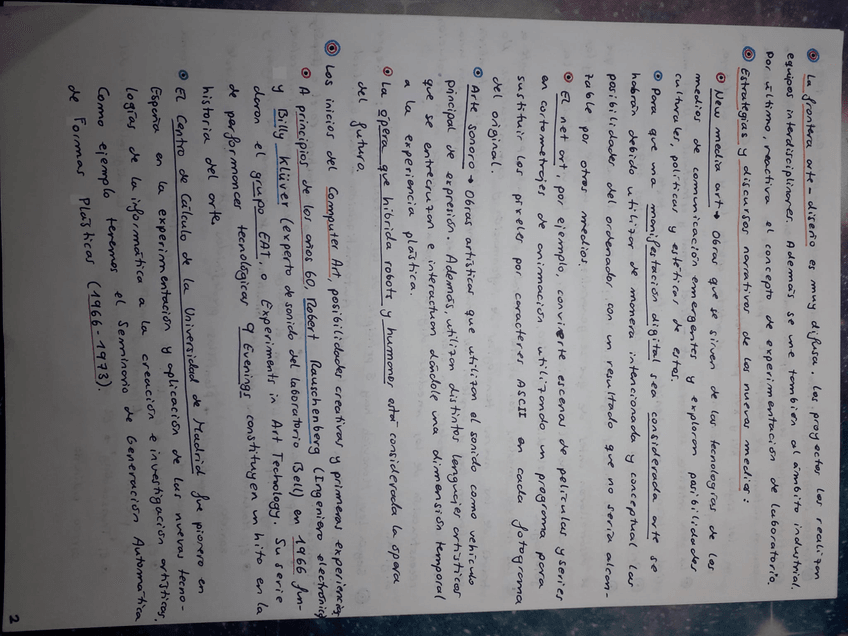 La frontera arte-diseño es muy difusa, los proyectos los realizan
equipos interdisciplinares. Además se une también al ámbito industrial.
Por último, reactiva el concepto de experimentación de laboratorio.
Estrategias y discursos narrativos de los nuevos medios:
New media art → Obras que se sirven de las tecnologías de los
medios de comunicación emergentes y exploran posibilidades
culturales, políticas y estéticas de estos.
Para que una manifestación digital sea considerada arte se
habrán debido utilizar de manera intencionada y conceptual las
posibilidades del ordenador con un resultado que no sería alcan-
zable por otros medios.
El net art, por ejemplo, convierte escenas de películas y series
en cortometrajes de animación utilizando un programa para
sustituir los píxeles por caracteres ASCII en cada fotograma
del original.
Arte sonoro → Obras artísticas que utilizan el sonido como vehículo
principal de expresión. Además, utilizan distintos lenguajes artísticos
que se entrecruzan e interactúan dándole una dimensión temporal
a la experiencia plástica.
La ópera que hibrida robots y humanos está considerada la ópera
del futuro.
Los inicios del Computer Art, posibilidades creativas y primeras experiencias
A principios de los años 60, Robert Rauschenberg (Ingeniero electrónico
y Billy Klüver (experto de sonido del laboratorio Bell) en 1966 fun-
daron el grupo EAT, o Experiments in Art Techology. Su serie
de performances tecnológicas 9 Evenings constituyen un hito en la
historia del arte.
El Centro de Cálculo de la Universidad de Madrid fue pionero en
España en la experimentación y aplicación de las nuevas tecno-
logías de la informática a la creación e investigación artísticas.
Como ejemplo tenemos el Seminario de Generación Automática
de Formas Plásticas (1966-1973).
2